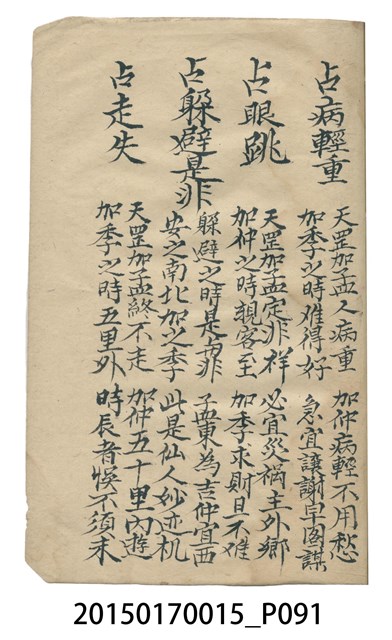 占病輕重
天罡加孟人病重 加仲病輕不用愁
加季之時难得好 急宜讓謝早圖謀
占眼跳
天罡加孟定非祥 必宜災禍主外鄉
加仲之時親客至 加季求財日不难
占躲避是非
躲避之時是崗非 孟東為吉仲宜西
安之南北加之季 此是仙人妙迹机
占走失
天罡加孟終不走 加仲五十里內遊
加季之時五里外 時辰者悞不須求
20150170015_P091